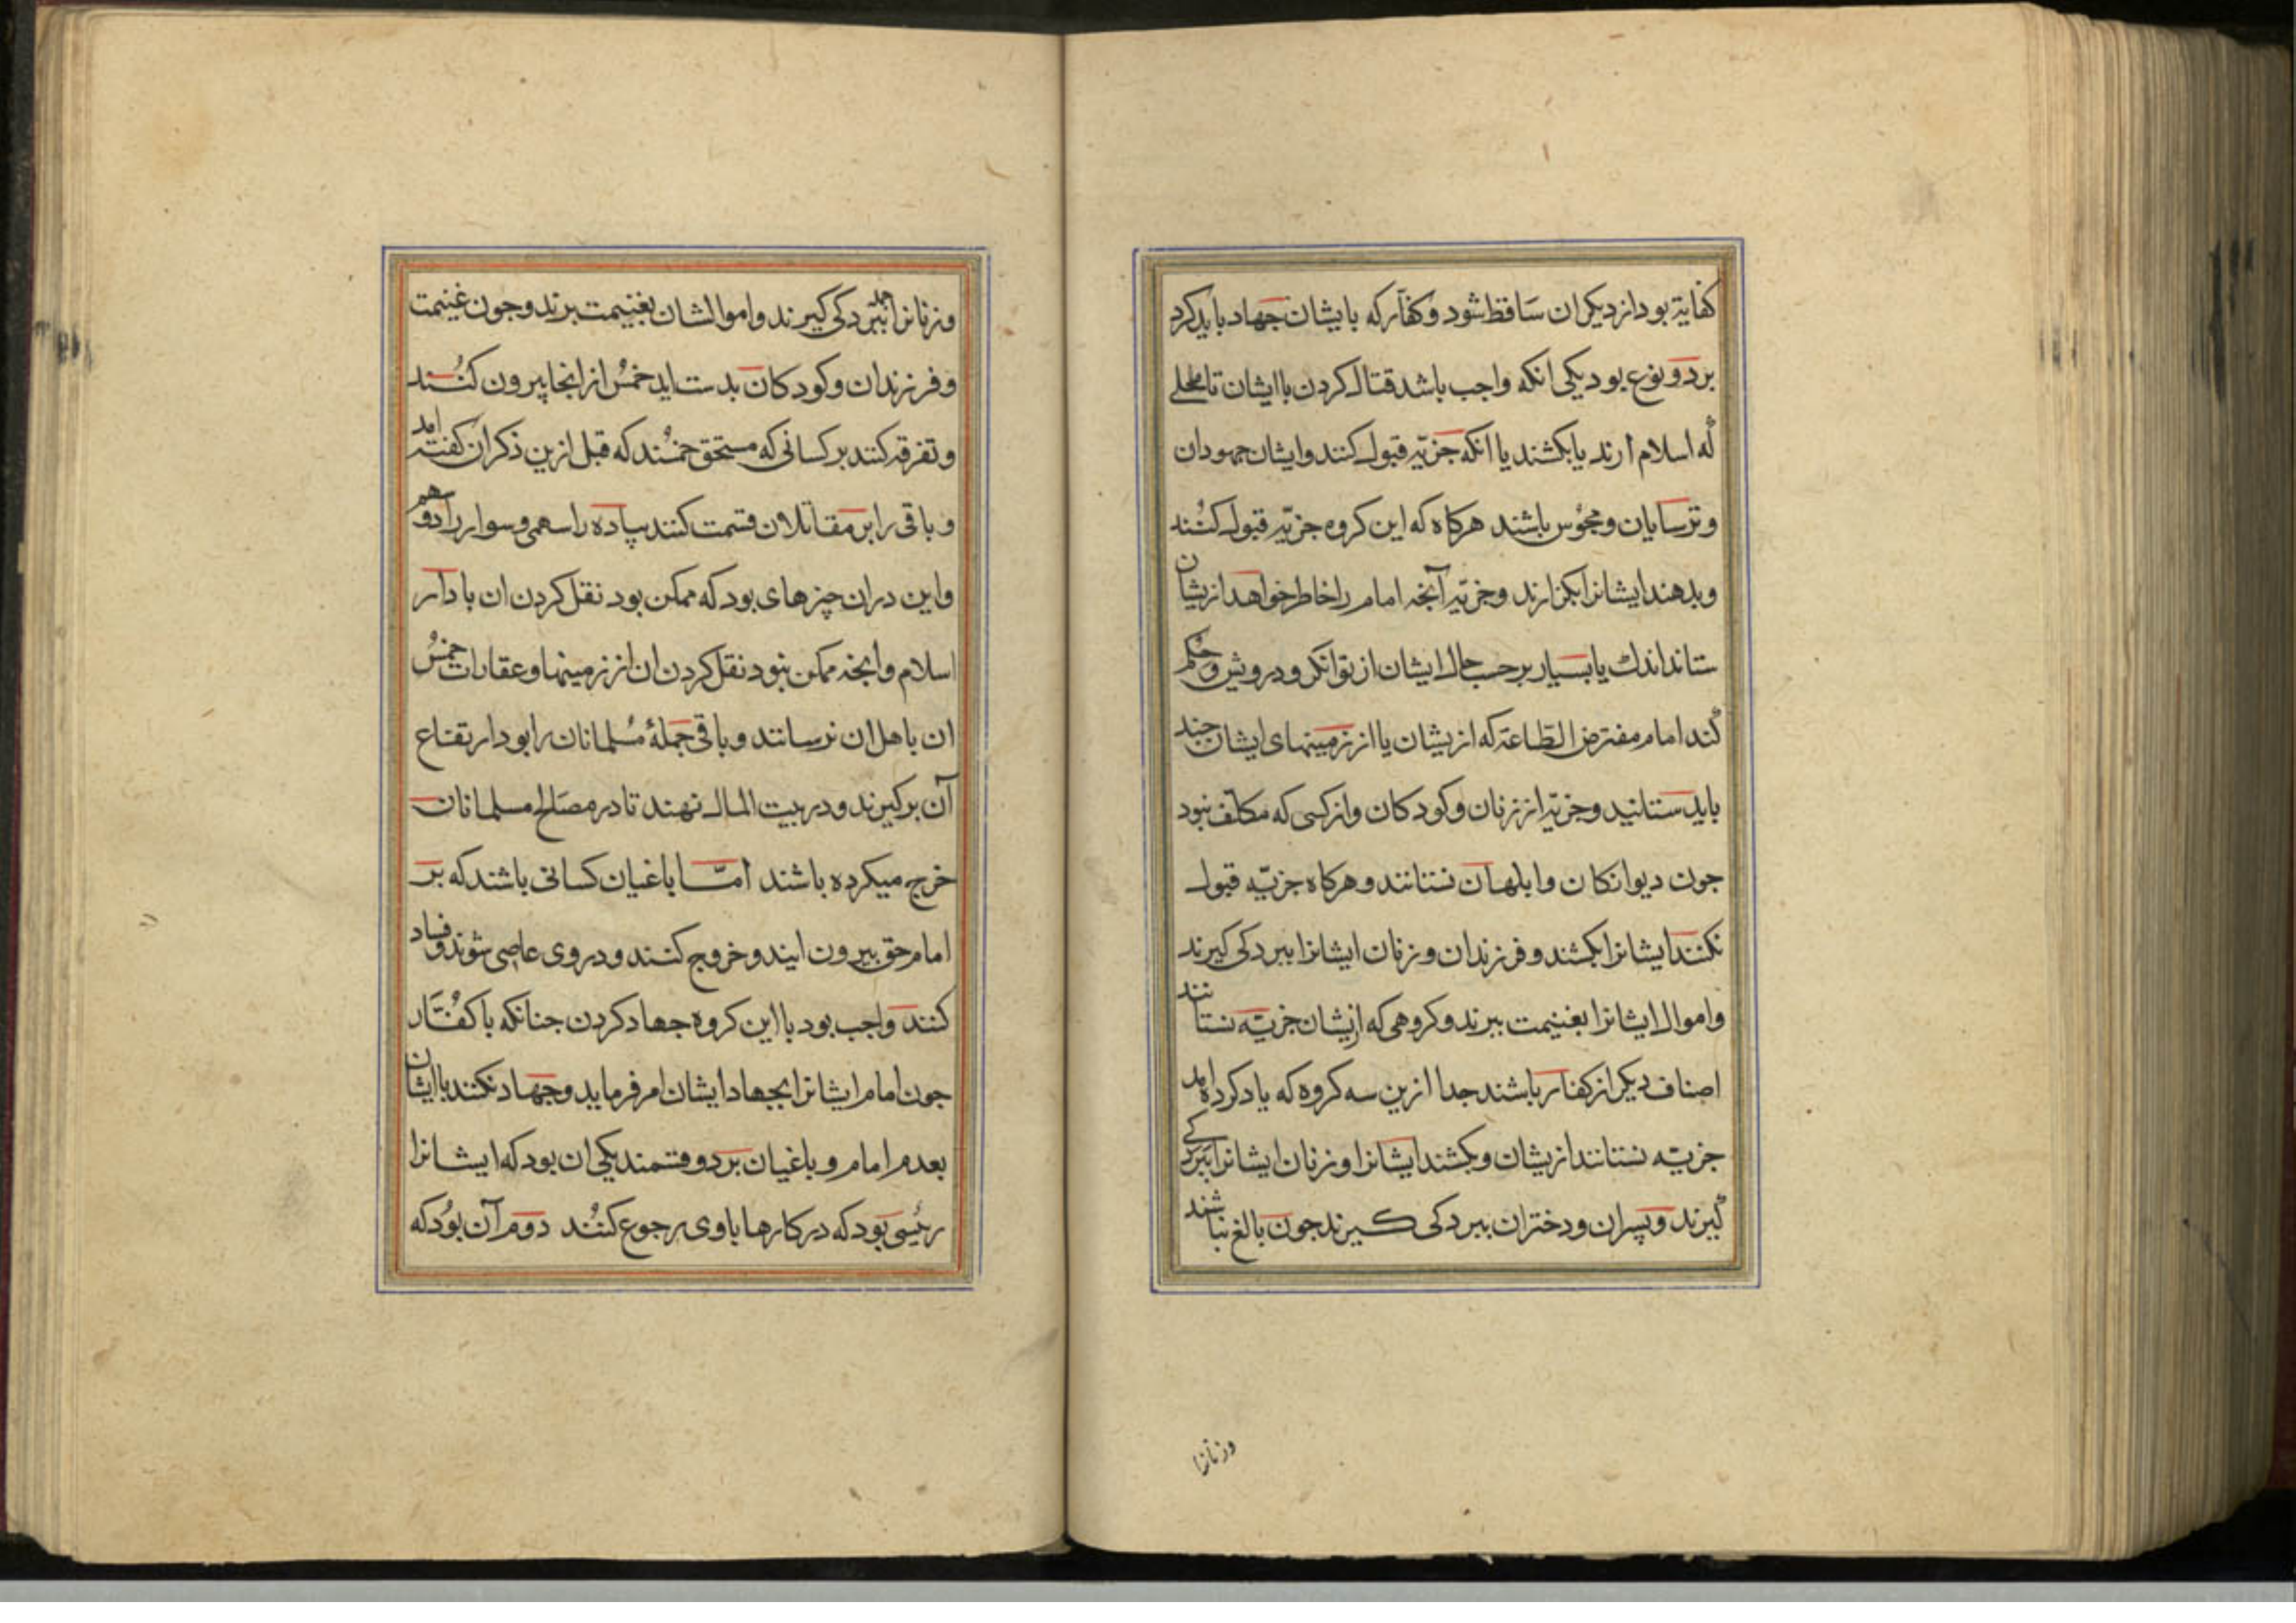 کفایة بود از دیکران ساقط شود و کفار که بایشان جهاد باید کرد
بر دو نوع بود یکی انکه واجب باشد قتال کردن باایشان تا
که اسلام ارند یا بکشند یا انکه جزیّه قبول کنند و ایشان جهودان
و ترسایان و مجوس باشند هرکاه که این کروه جزیّه قبول کنند
و بدهند ایشانرا بکزارند و جزیّه آنجه امام را خاطر خواهد ازیشان
ستاند اندك یا بسیار بر حسب حال ایشان از توانکر و درویش و حکم
کند امام مفترض الطّاعة که ازیشان یا از زمینهای ایشان جند
باید ستانید و جزیّه از زنان و کودکان و ازکسی که مکلّف نبود
جون دیوانکان و ابلهان نستانند و هرکاه جزیّه قبول
نکنند ایشانرا بکشند و فرزندان و زنان ایشانرا ببردکی کیرند
و اموال ایشانرا بغنیمت ببرند و کروهی که ازیشان جزیّه نستانند
اصناف دیکر از کفار باشند جدا ازین سه کروه که یاد کرده امد
جزیّه نستانند ازیشان و بکشند ایشانرا و زنان ایشانرا ببردکی
کیرند و پسران و دختران ببردکی کیرند جون بالغ نباشند
وزنانرا
وزنانرا ببردکی کیرند و اموالشان بغنیمت برند و جون غنیمت
و فرزندان و کودکان بدست اید خمس از انجا بیرون کنند
و تفرقه کنند بر کسانی که مستحق خمسند که قبل ازین ذکر ان کفته امد
و باقی را بر مقاتلان قسمت کنند پیاده را سهمی و سوار را دو سهم
و این در ان چیزهای بود که ممکن بود نقل کردن ان با دار
اسلام و انجه ممکن نبود نقل کردن ان از زمینها و عقارات خمس
ان باهل ان نرسانند و باقی جملهٔ مسلمانان را بود ارتفاع
آن برکیرند و در بیت المال نهند تا در مصالح مسلمانان
خرج میکرده باشند امّا باغیان کسانی باشند که بر
امام حق بیرون ایند و خروج کنند و در وی عاصی شوند و فساد
کنند واجب بود باین کروه جهاد کردن جنانکه با کفّار
جون امام ایشانرا بجهاد ایشان امر فرماید و جهاد نکنند باایشان
بعدم امام و باغیان بر دو قسمند یکی ان بود که ایشانرا
رئیسی بود که در کارها باوی رجوع کنند دوم آن بود که